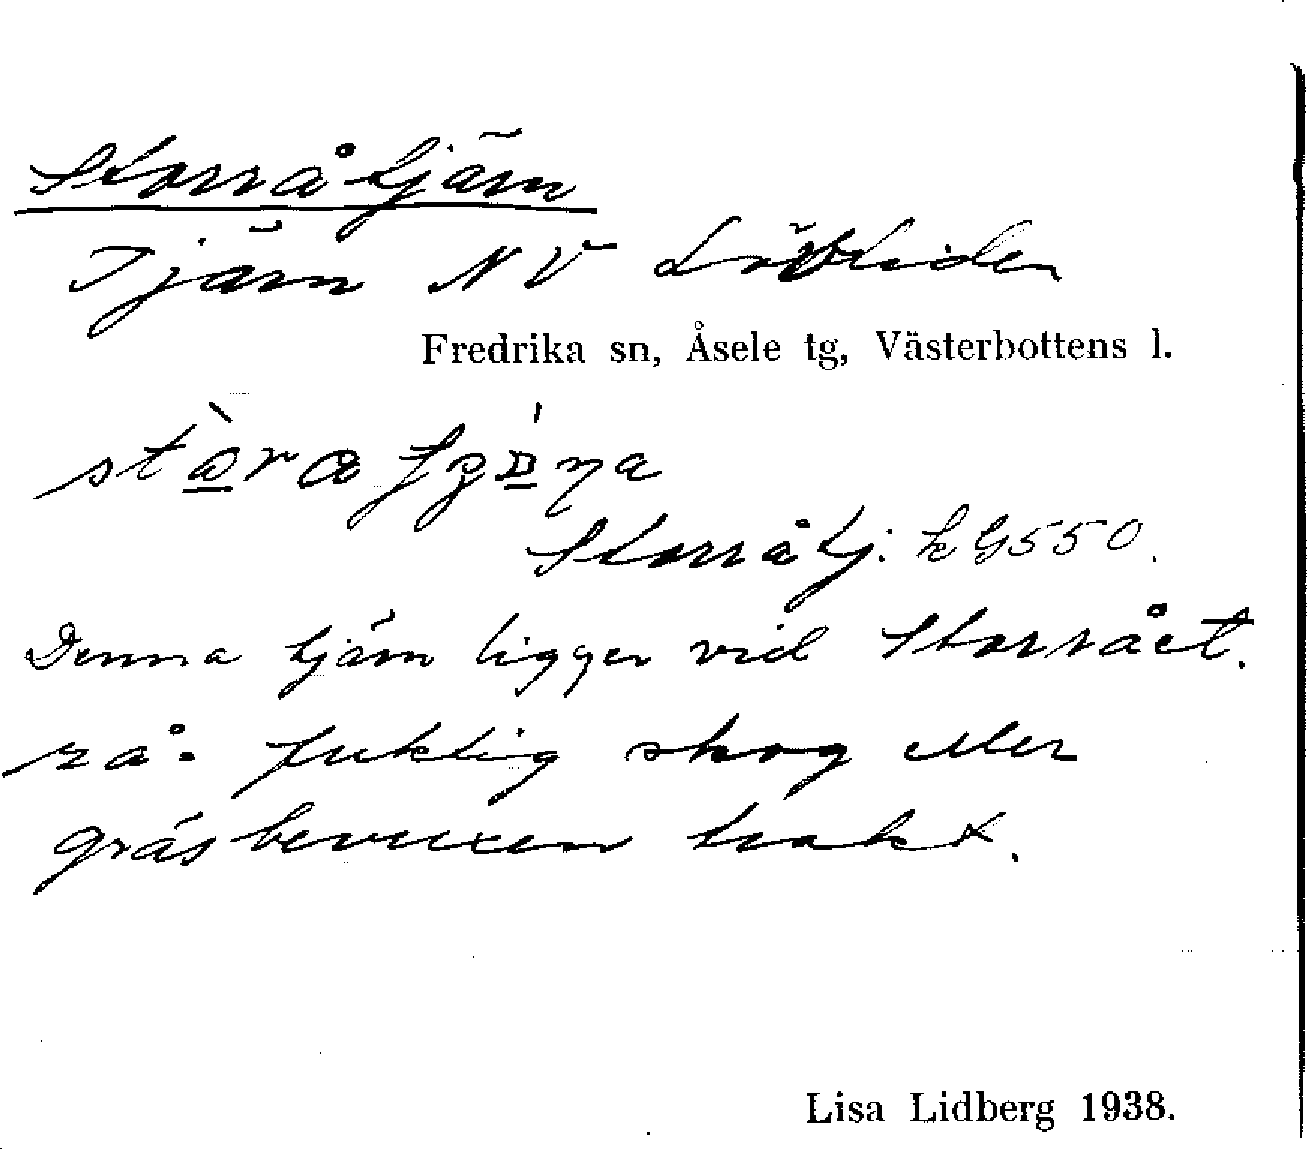 Storråtjärn
Tjärn NV Lövliden
Fredrika sn, Åsele tg, Västerbottens l.
Storråtj: k G550.
Denna tjärn ligger vid Storrået.
rå: fuktig skog eller
gräsbevuxen trakt.
Lisa Lidberg 1938.